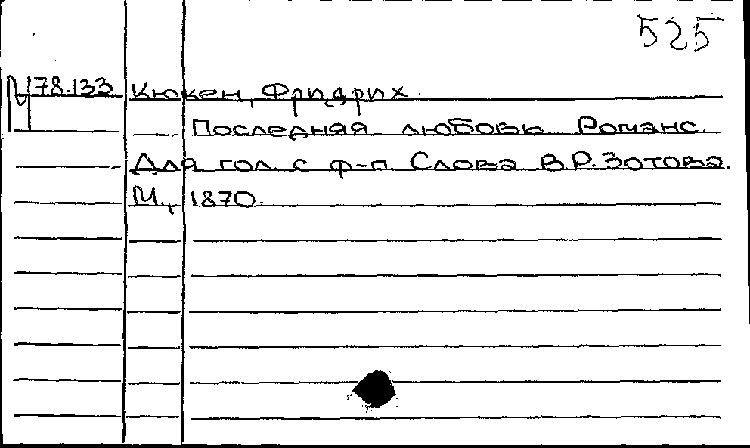 525
М178.133 Кюкен, Фридрих
Последняя любовь Романс.
Для гол. с ф-п Слова В.Р. Зотова.
М., 1870.